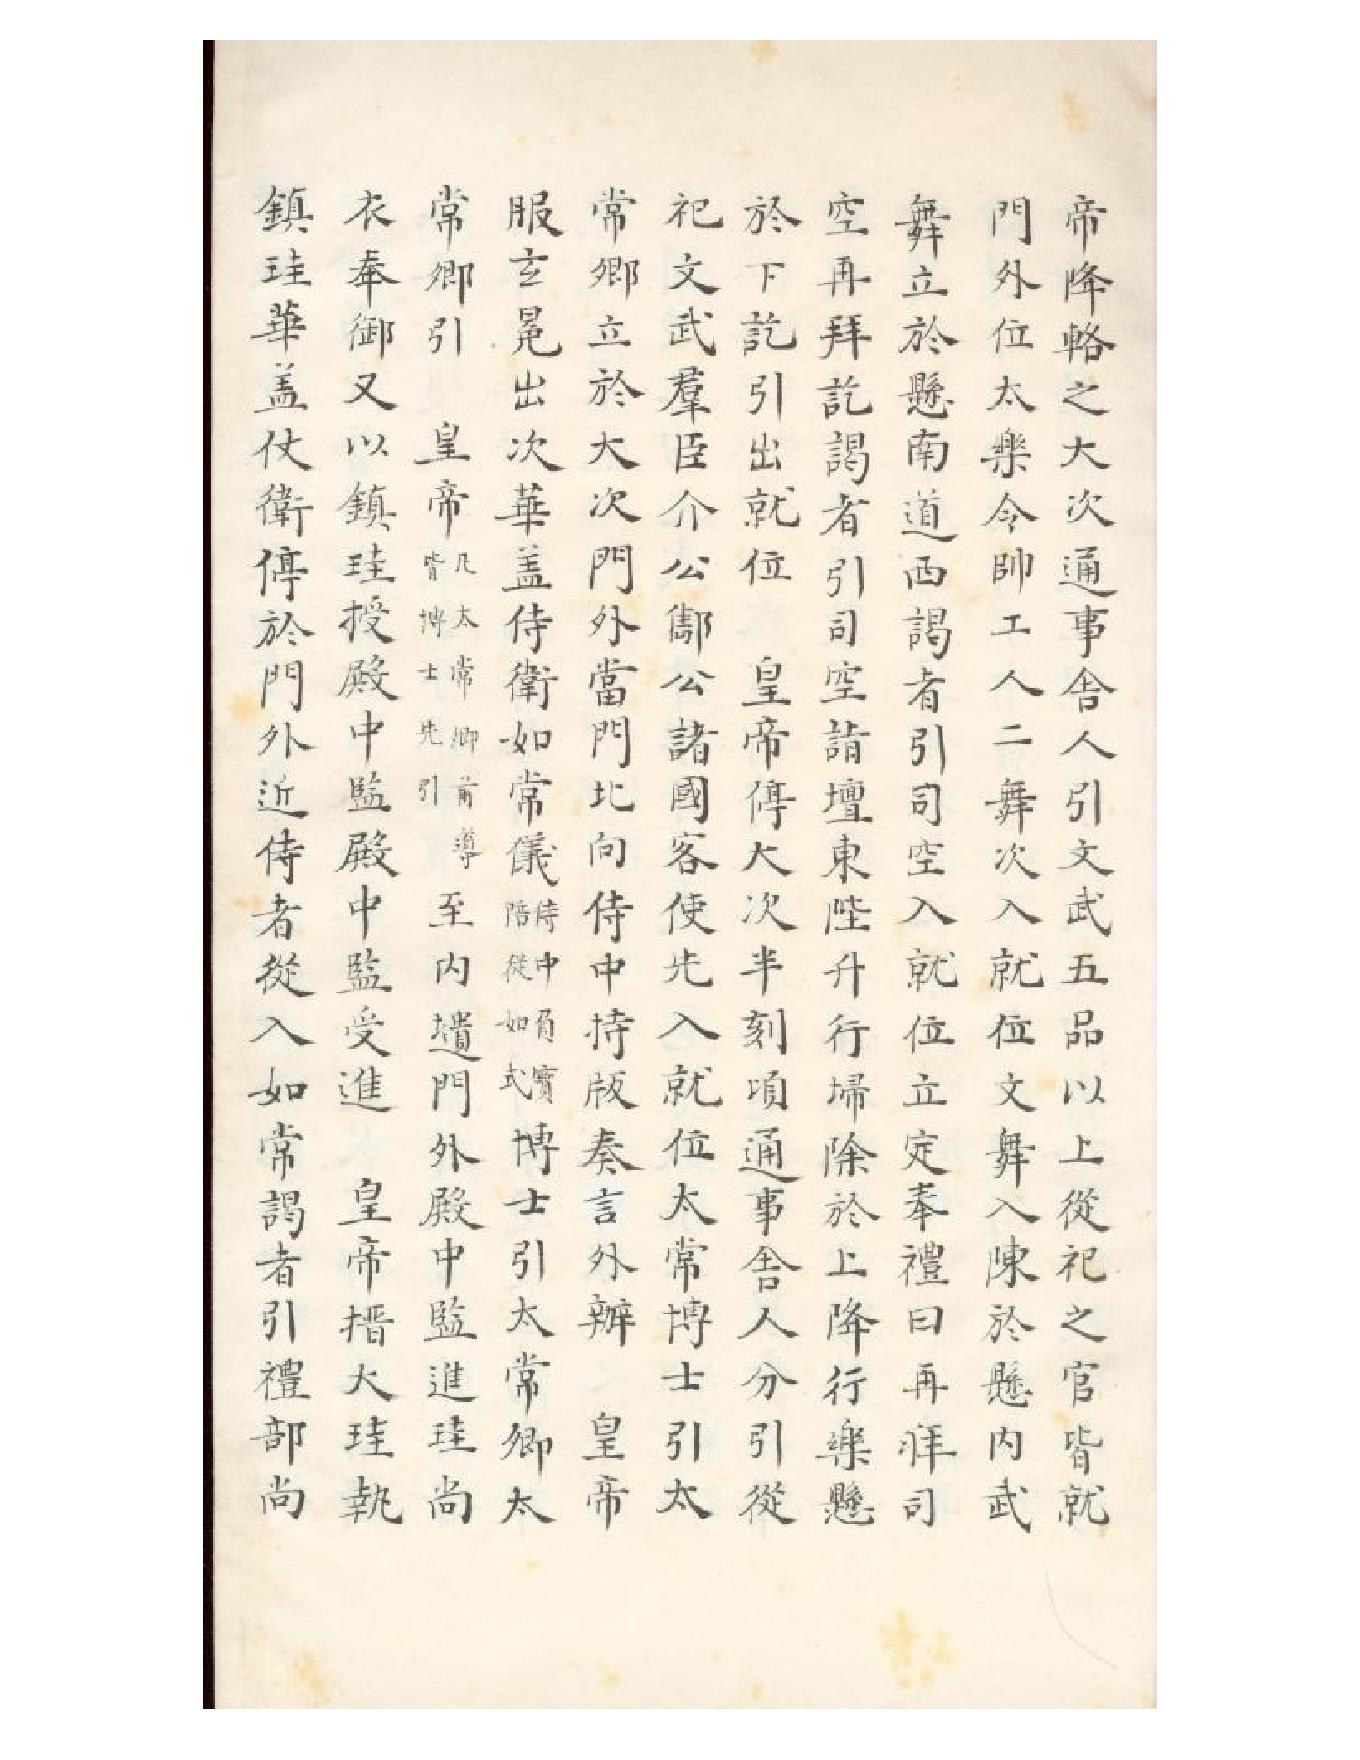 帝降輅之大次通事舎人引文武五品以上從祀之官皆就
門外位太樂令帥工人二舞次入就位文舞入陳於懸内武
舞立於懸南道西謁者引司空入就位立定奉禮曰再拜司
空再拜訖謁者引司空詣壇東陛升行掃除於上降行樂懸
於下訖引出就位　皇帝停大次半刻項通事舎人分引從
祀文武羣臣介公酅公諸國客使先入就位太常博士引太
常卿立於大次門外當門北向侍中持版奏言外辦　皇帝
服玄冕出次華盖侍衛如常儀侍中負寶陪從如式博士引太常卿太
常卿引　皇帝凡太常卿前導皆博士先引至内壝門外殿中監進珪尚
衣奉御又以鎮珪授殿中監殿中監受進　皇帝搢大珪執
鎮珪華盖仗衛停於門外近侍者從入如常謁者引禮部尚